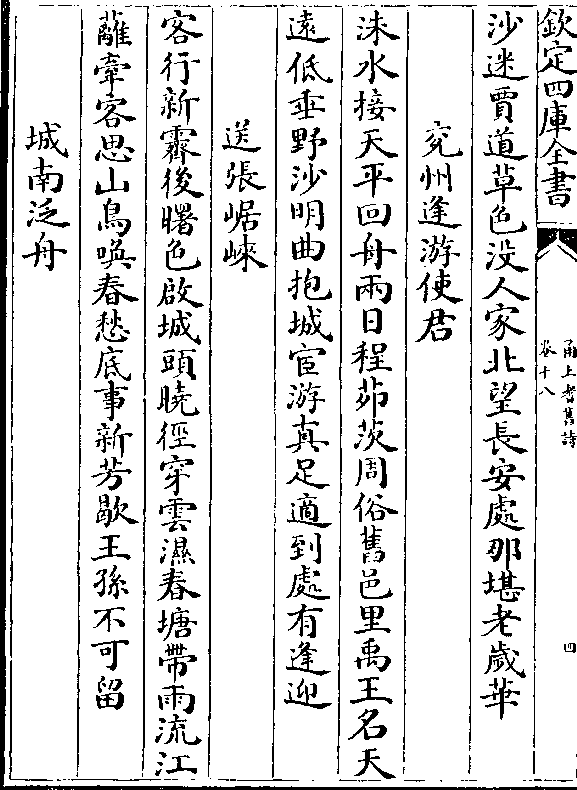 欽定四庫全書
甬上耆舊詩
卷十八
四
沙迷賈道草色没人家北望長安處那堪老歲華
兖州逢游使君
洙水接天平回舟兩日程茆茨周俗舊邑里禹王名天
遠低垂野沙明曲抱城宦游真足適到處有逢迎
送張崌崍
客行新霽後曙色啟城頭曉徑穿雲濕春塘帶雨流江
蘺牽客思山鳥喚春愁底事新芳歇王孫不可留
城南泛舟